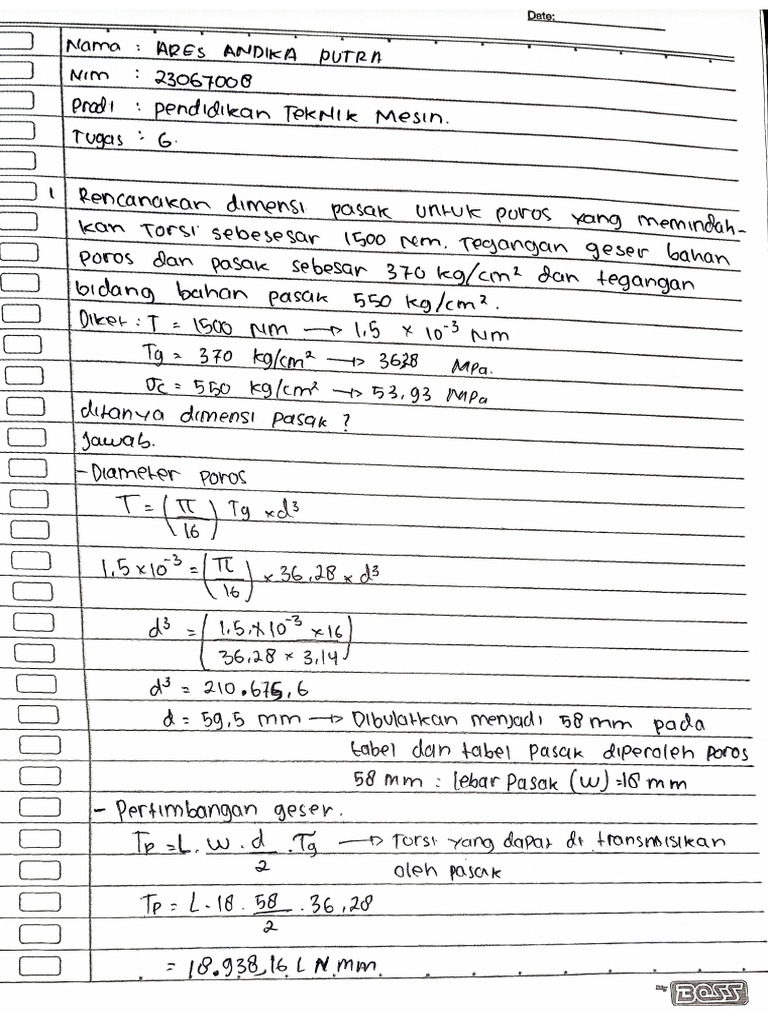 Date:
Nama : ARES ANDIKA PUTRA
Nim : 23067008
Prodi : pendidikan Teknik Mesin.
Tugas : 6.
1 Rencanakan dimensi pasak untuk poros yang memindah-
kan Torsi sebesesar 1500 Nm. Tegangan geser bahan
poros dan pasak sebesar 370 kg/cm² dan tegangan
bidang bahan pasak 550 kg/cm².
Diket : T = 1500 Nm → 1.5 × 10⁻³ Nm
Tg = 370 kg/cm² → 3628 MPa.
σc = 550 kg/cm² → 53,93 MPa
ditanya dimensi pasak ?
Jawab.
- Diameter poros
T = (π/16) Tg × d³
1.5 × 10⁻³ = (π/16) × 36,28 × d³
d³ = (1.5 × 10⁻³ × 16 / 36,28 × 3,14)
d³ = 210.675,6
d = 59,5 mm → Dibulatkan menjadi 58 mm pada
tabel dan tabel pasak diperoleh poros
58 mm : lebar Pasak (W) = 18 mm
- Pertimbangan geser.
Tp = L . W . d/2 . Tg → Torsi yang dapat di transmisikan
oleh pasak
Tp = L . 18 . 58/2 . 36,28
= 18.938,16 L N.mm.
Big BOSS